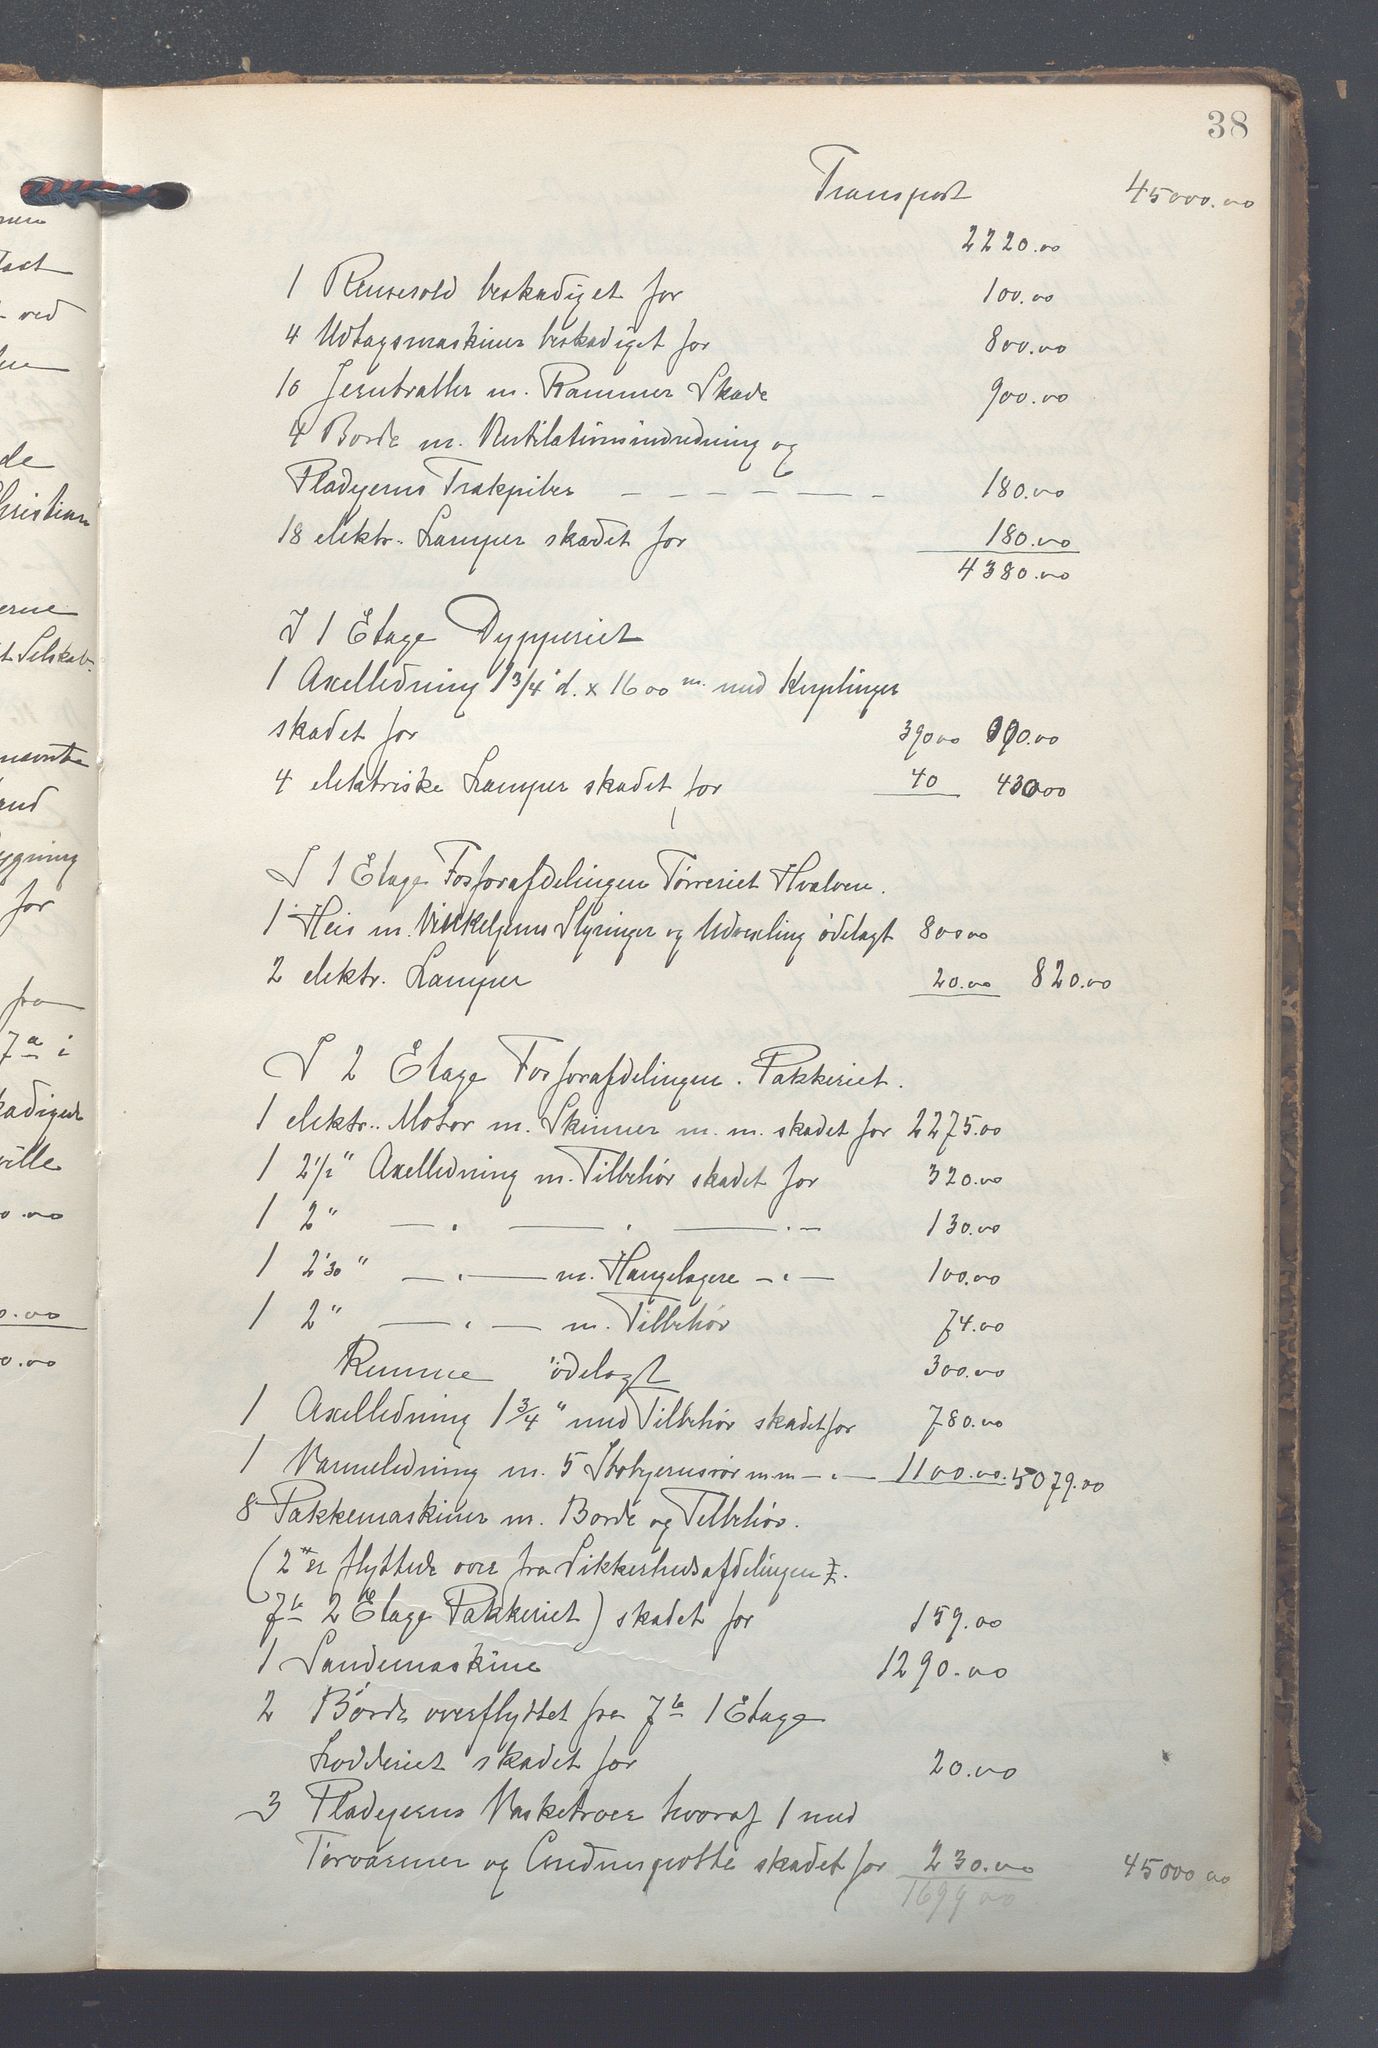 38
Transport 45000.00
2220.00
1 Rensesold beskadiget for 100.00
4 Udtagsmaskiner beskadiget for 800.00
10 Jerntraller m. Rammer Skade 900.00
4 Borde m. Ventilationsindredning og
Pladejerns Trakpiber — — — — — — 180.00
18 elektr. Lamper skadet for 180.00
4380.00
I 1 Etage Dypperiet
1 Axelledning 1 3/4" d. x 1600 m. med Kuplinger
skadet for 390.00 390.00
4 elektriske Lamper skadet for 40 430.00
I 1 Etage Fosforafdelingen Tørreriet Hvalven.
1 Heis m. Vinkeljerns Styringer og Udvexling ödelagt 800.00
2 elektr. Lamper 20.00 820.00
I 2 Etage Fosforafdelingen. Pakkeriet.
1 elektr. Motor m. Skinner m. m. skadet for 2275.00
1 2 1/2" Axelledning m. Tilbehör skadet for 320.00
1 2" — " — " — " — 130.00
1 2'30" — " — m. Hængelagere — " — 100.00
1 2" — " — m. Tilbehör 74.00
Remme ödelagt 300.00
1 Axelledning 1 3/4" med Tilbehör skadet for 780.00
1 Varmeledning m. 5 Støbejernsrör m.m — " — 1100.00. 5079.00
8 Pakkemaskiner m. Borde og Tilbehör.
(2 er flyttede over fra Sikkerhedsafdelingen
7b 2 Etage Pakkeriet) skadet for 159.00
1 Sandemaskine 1290.00
2 Borde overflyttet fra 7b 1 Etage
Lodderiet skadet for 20.00
3 Pladejerns Vasketroer hvoraf 1 med
Tørvarmer og skadet for 230.00 45000.00
1699.00
ved
de
Christian
erne
for
fra
7a i
0.00
0.00
0.00